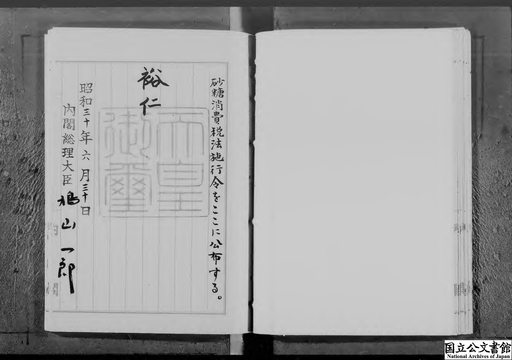 砂糖消費税法施行令をここに公布する。
裕仁
天皇御璽
昭和三十年六月三十日
内閣総理大臣 鳩山一郎
国立公文書館
National Archives of Japan